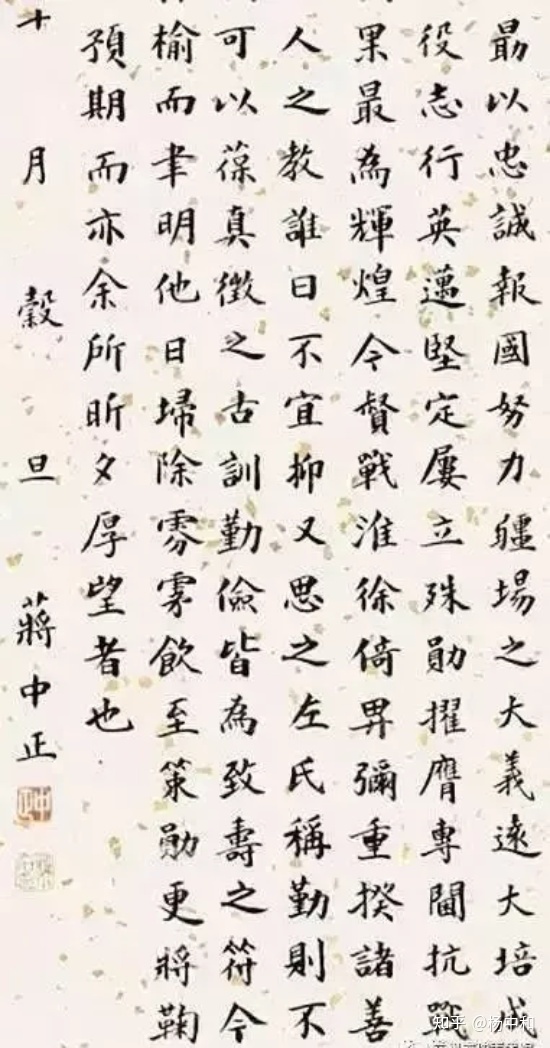 最以忠誠報國努力疆場之大義遠大培成
役志行英邁堅定屢立殊勛擢膺專閫抗戰
果最為輝煌今督戰淮徐倚畀彌重揆諸善
人之教誰曰不宜抑又思之左氏稱勤則不
可以葆真徵之古訓勤儉皆為致壽之符今
榆而聿明他日埽除雰雺飲至策勛更將鞠
預期而亦余所昕夕厚望者也
十月穀旦 蔣中正
中正
知乎 @杨中和